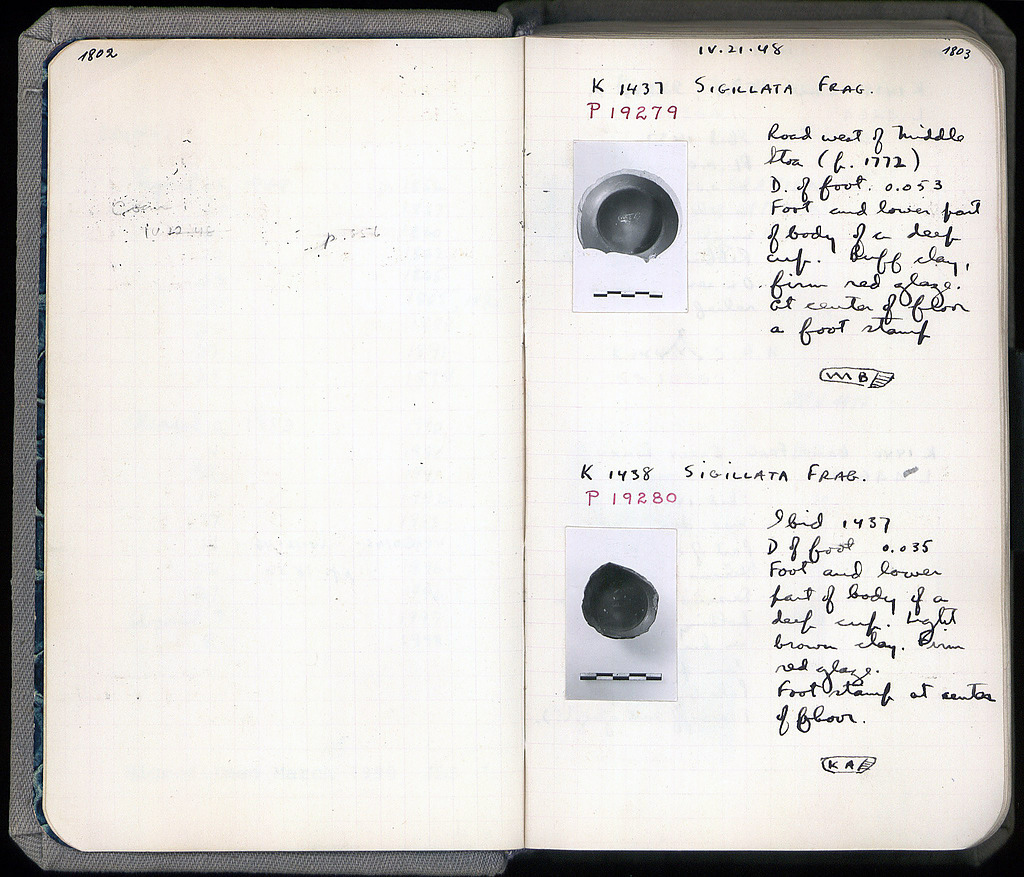 1802
IV.22.48
IV.21.48
1803
K 1437 SIGILLATA FRAG.
P 19279
Road west of Middle
Stoa (p. 1772)
D. of foot. 0.053
Foot and lower part
of body of a deep
cup. Buff clay,
firm red glaze.
At center of floor
a foot stamp
MB
K 1438 SIGILLATA FRAG.
P 19280
Ibid 1437
D of foot 0.035
Foot and lower
part of body of a
deep cup. Light
brown clay. Firm
red glaze.
Foot stamp at center
of floor.
KA